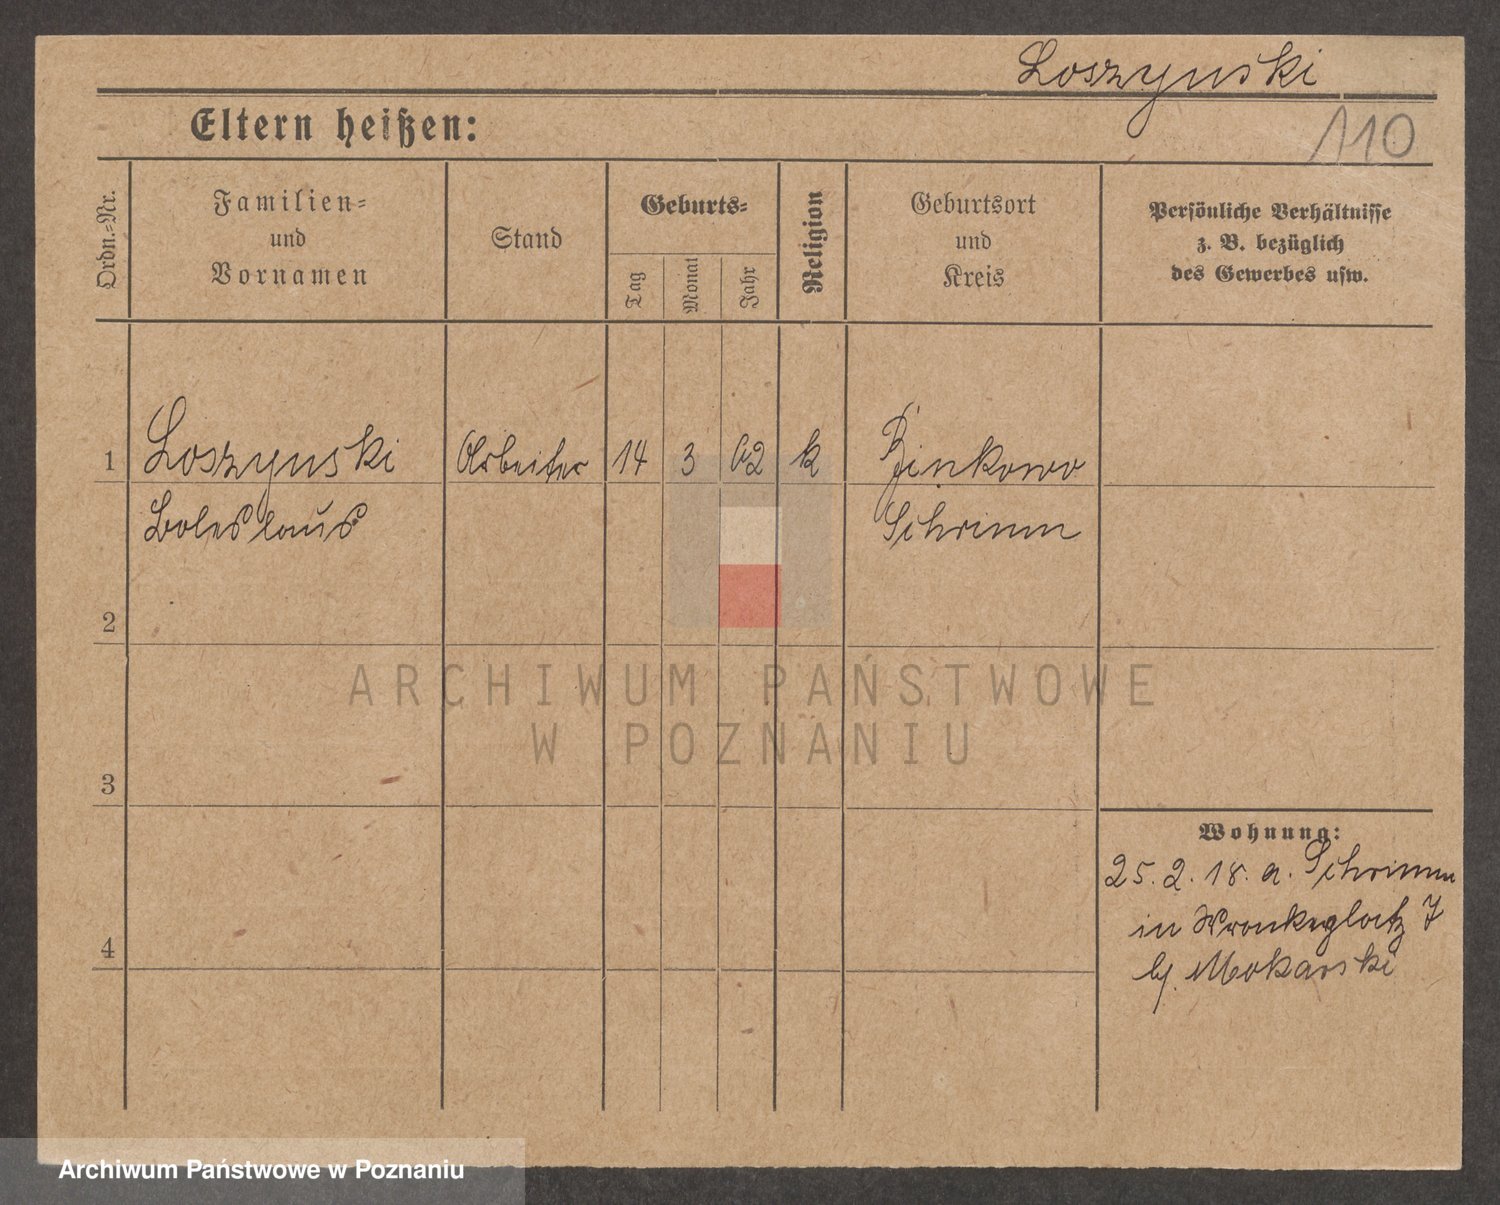 Loszynski
110
Eltern heißen:
Ordn.-Nr.
Familien-
und
Vornamen
Stand
Geburts-
Tag
Monat
Jahr
Religion
Geburtsort
und
Kreis
Persönliche Verhältnisse
z. B. bezüglich
des Gewerbes usw.
1 Loszynski Arbeiter 14 3 02 k Binkowo
Boleslaus Schrimm
2
3
4
Wohnung:
25. 2. 18. a. Schrimm
in Wronkerplatz 7
b/. Mokarski
ARCHIWUM PAŃSTWOWE
W POZNANIU
Archiwum Państwowe w Poznaniu